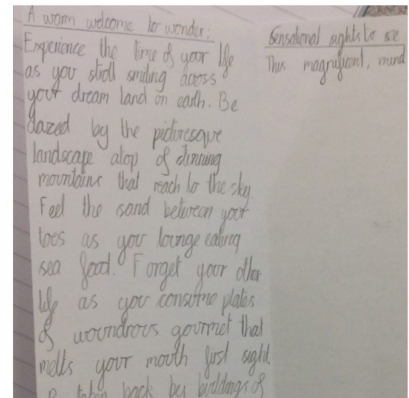 A warm welcome to wonder:
Experience the time of your life
as you stroll smiling across
your dream land on earth. Be
dazed by the picturesque
landscape atop of stunning
mountains that reach to the sky.
Feel the sand between your
toes as you lounge eating
sea food. Forget your other
life as you consume plates
of woundrous gourmet that
melts your mouth first sight.
taken back by buildings of
Sensational sights to see
This magnificent, mind